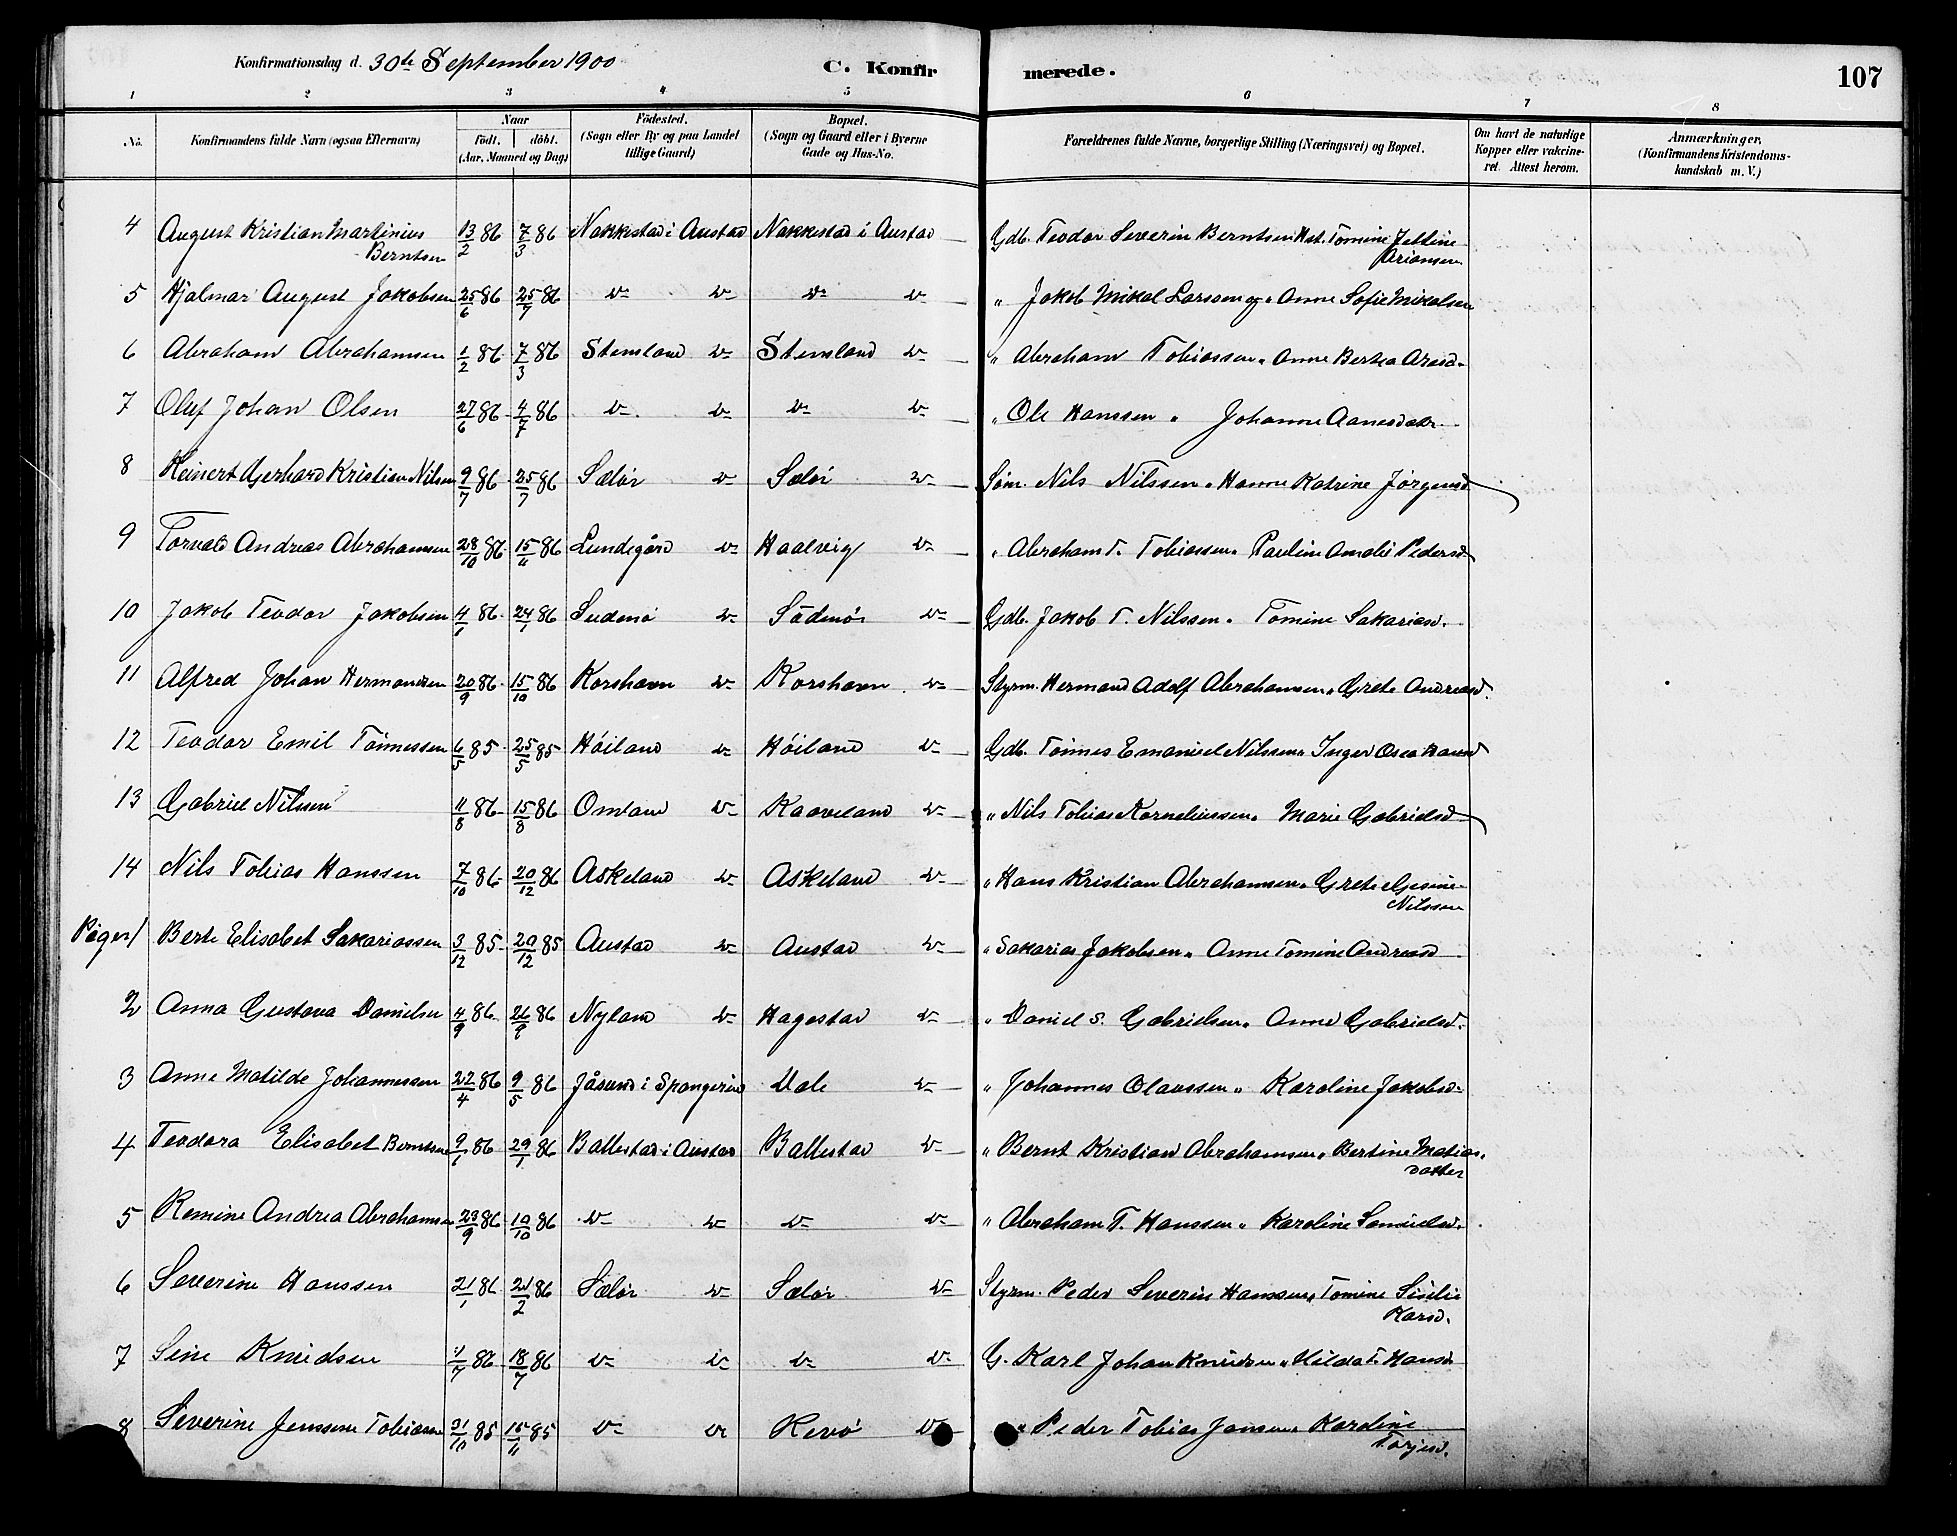 Konfirmationsdag d. 30de September 1900 C. Konfir merede. 107
1 2 3 4 5 6 7 8
No. Konfirmandens fulde Navn (ogsaa Efternavn) Naar födt. döbt. (Aar, Maaned og Dag) Födested. (Sogn eller By og paa Landet tillige Gaard) Bopæl. (Sogn og Gaard eller i Byerne Gade og Hus-No. Forældrenes fulde Navne, borgerlige Stilling (Næringsvei) og Bopæl. Om havt de naturlige Kopper eller vakcineret. Attest herom. Anmærkninger, (Konfirmandens Kristendomskundskab m. V.)
4 August Kristian Martinius Berntsen 13/2 86 7/3 86 Nakkestad i Austad Nakkestad i Austad Gdb. Teodor Severin Berntsen Hst. Tomine Jettine Ariansen
5 Hjalmar August Jakobsen 25/6 86 25/7 86 d– d– d– d– " Jakob Mikal Larssen og " Anne Sofie Mikalsen
6 Abraham Abrahamsen 1/2 86 7/3 86 Stensland d– Stensland d– " Abraham Tobiassen " Anne Bertea Arasd.
7 Oluf Johan Olsen 27/6 86 4/7 86 d– d– d– d– " Ole Hanssen " Johanne Aanesdatr.
8 Reinert Gerhard Kristian Nilsen 9/7 86 25/7 86 Sælør d– Sælør d– Søm. Nils Nilssen " Hanne Katrine Jørgensd
9 Torvald Andreas Abrahamsen 28/10 86 15/11 86 Lundegård d– Haalvig d– " Abraham T. Tobiassen " Pauline Amalie Pedersd
10 Jakob Teodor Jakobsen 4/1 86 24/1 86 d– d– Gdb. Jakob T. Nilssen " Tomine Sakariasd.
11 Alfred Johan Hermandsen 20/9 86 15/10 86 Korshavn d– Korshavn d– Styrm. Hermand Adolf Abrahamsen " Grete Andreasd.
12 Teodor Emil Tönnessen 6/5 85 25/5 85 Höiland d– Höiland d– Gdb. Tönnes Emanuel Nilssen " Inger Osea Hansd
13 Gabriel Nilssen 11/8 86 15/8 86 Omland d– Kaaveland d– " Nils Tobias Korneliussen " Marie Gabrielsd
14 Nils Tobias Hanssen 7/10 86 20/12 86 Askeland d– Askeland d– " Hans Kristian Abrahamsen " Grete Gesine Nilssen
Piger 1 Berte Elisabet Sakariassen 3/12 85 20/12 85 Austad d– Austad d– " Sakarias Jakobsen " Anne Tomine Andreasd
2 Anna Gustava Danielsen 4/9 86 26/9 86 Nyland d– Hagestad d– " Daniel S. Gabrielsen " Anne Gabrielsd.
3 Anne Matilde Johannessen 22/4 86 9/5 86 Jåsund i Spangeried Vale d– " Johannes Olaussen " Karoline Jakobsd.
4 Teodora Elisabet Berntsen 9/1 86 29/1 86 Ballestad i Austad Ballestad d– " Bernt Kristian Abrahamsen " Bertine Matiasdatter
5 Remine Andrea Abrahamsen 23/9 86 10/10 86 d– d– d– d– " Abraham T. Hanssen " Karoline Samuelsd.
6 Severine Hanssen 21/1 86 21/2 86 Sælør d– Sælør d– Styrm. Peder Severin Hanssen " Tomine Sisilie Karsd.
7 Sine Knudsen 1/7 86 18/7 86 d– d– d– d– G. Karl Johan Knudsen " Hilda T. Hansd
8 Severine Jenssine Tobiassen 21/10 85 15/11 85 d– d– Revö d– " Peder Tobias Jansen " Karoline Torjesd.